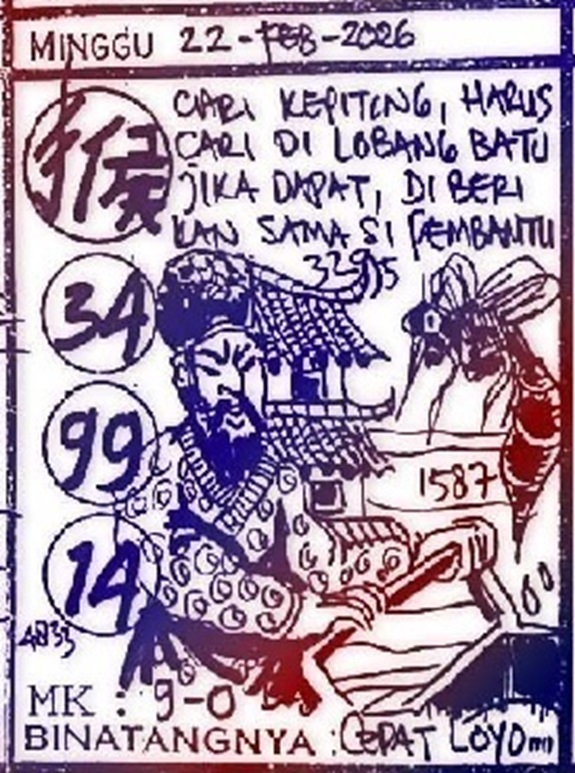 MINGGU 22-FEB-2026
猴
CARI KEPITING, HARUS
CARI DI LOBANG BATU
JIKA DAPAT, DI BERI
KAN SAMA SI PEMBANTU
34
99
1587
14
4833
MK : 9-0
BINATANGNYA : CEPAT LOYO